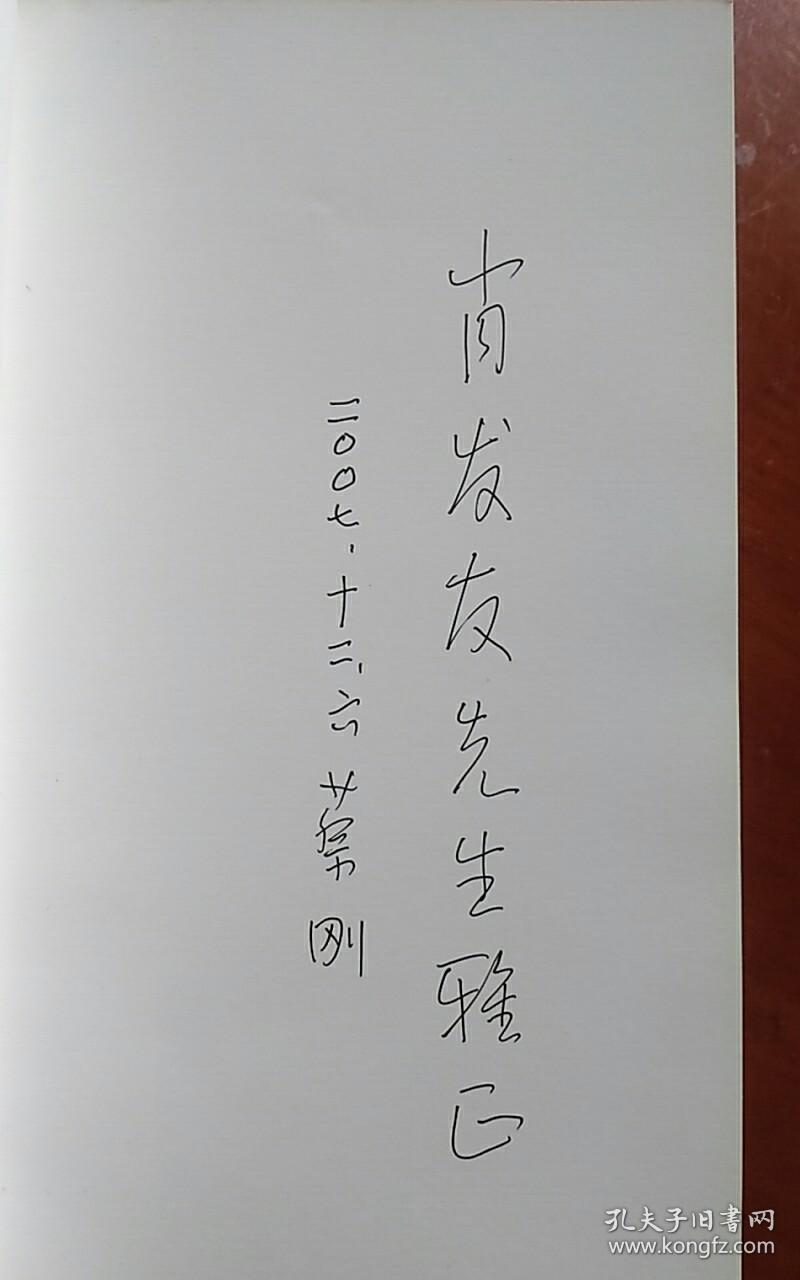 肖发友先生雅正
二〇〇七.十二.六 蔡刚
孔夫子旧書网
www.kongfz.com